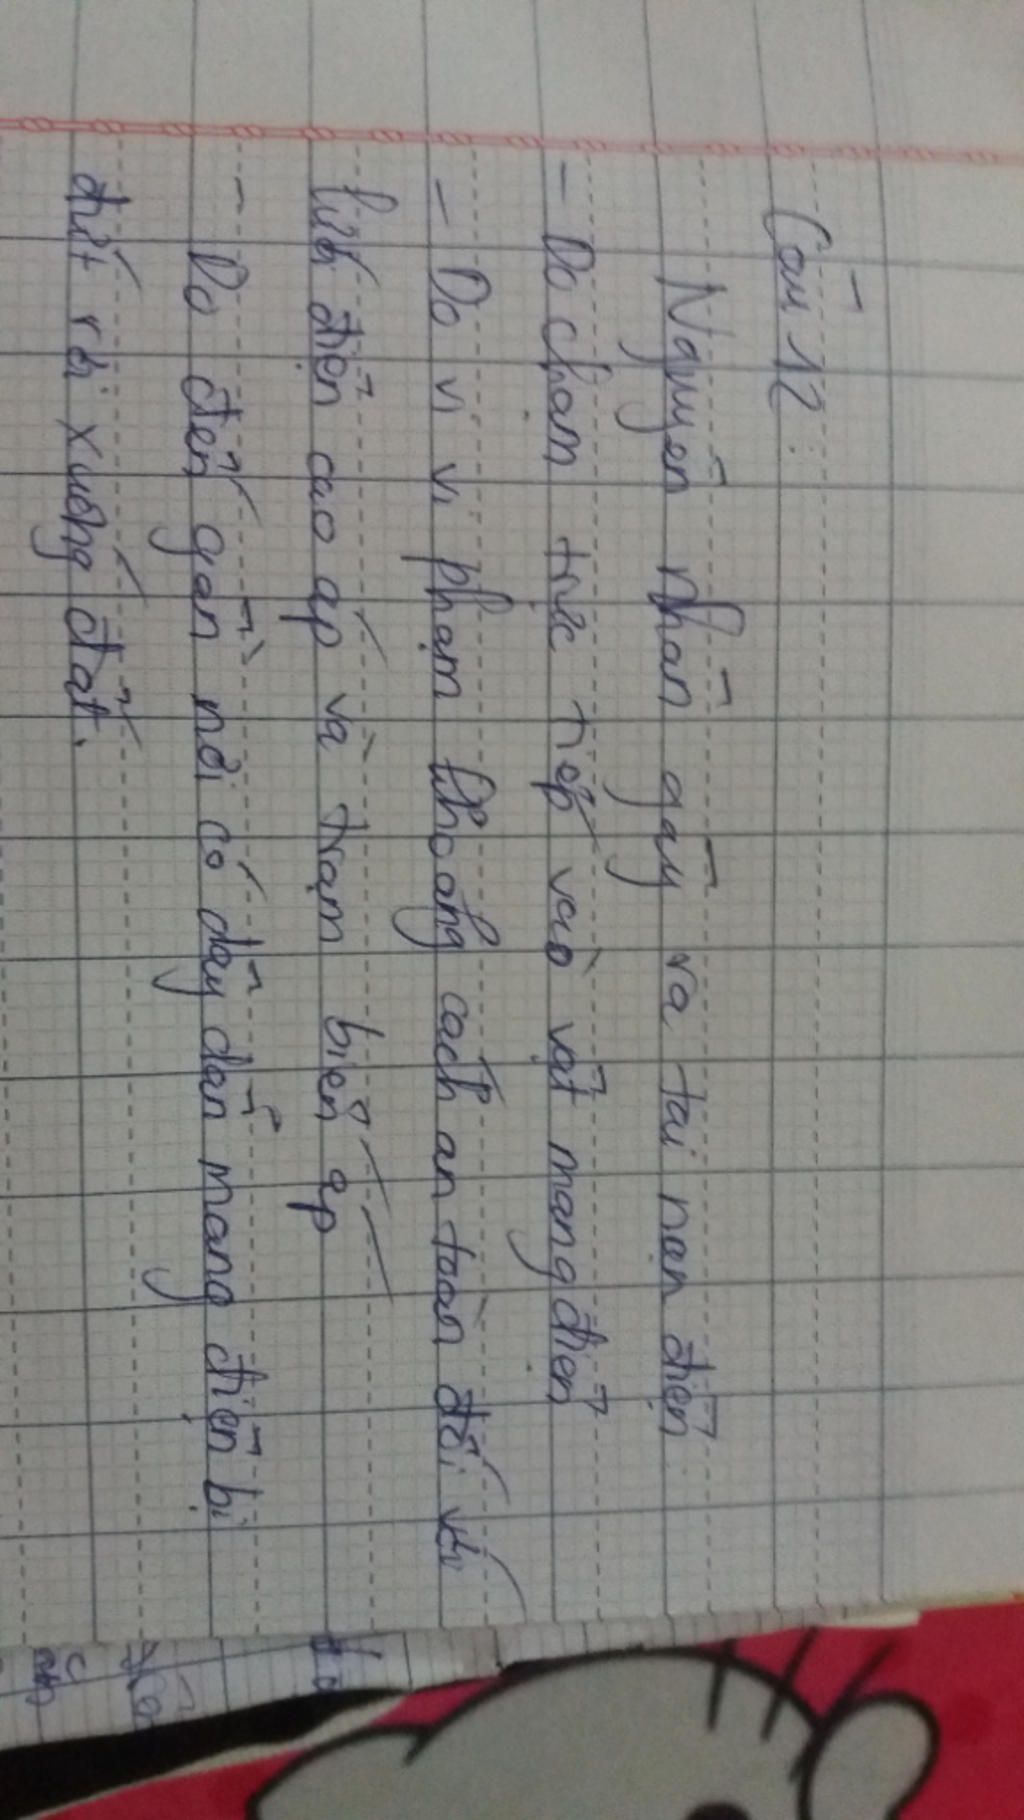 Câu 12:
Nguyên nhân gây ra tai nạn điện
- Do chạm trực tiếp vào vật mang điện
- Do vi vi phạm khoảng cách an toàn đối với
lưới điện cao áp và trạm biến áp
- Do đến gần nơi có dây dẫn mang điện bị
đứt rơi xuống đất.